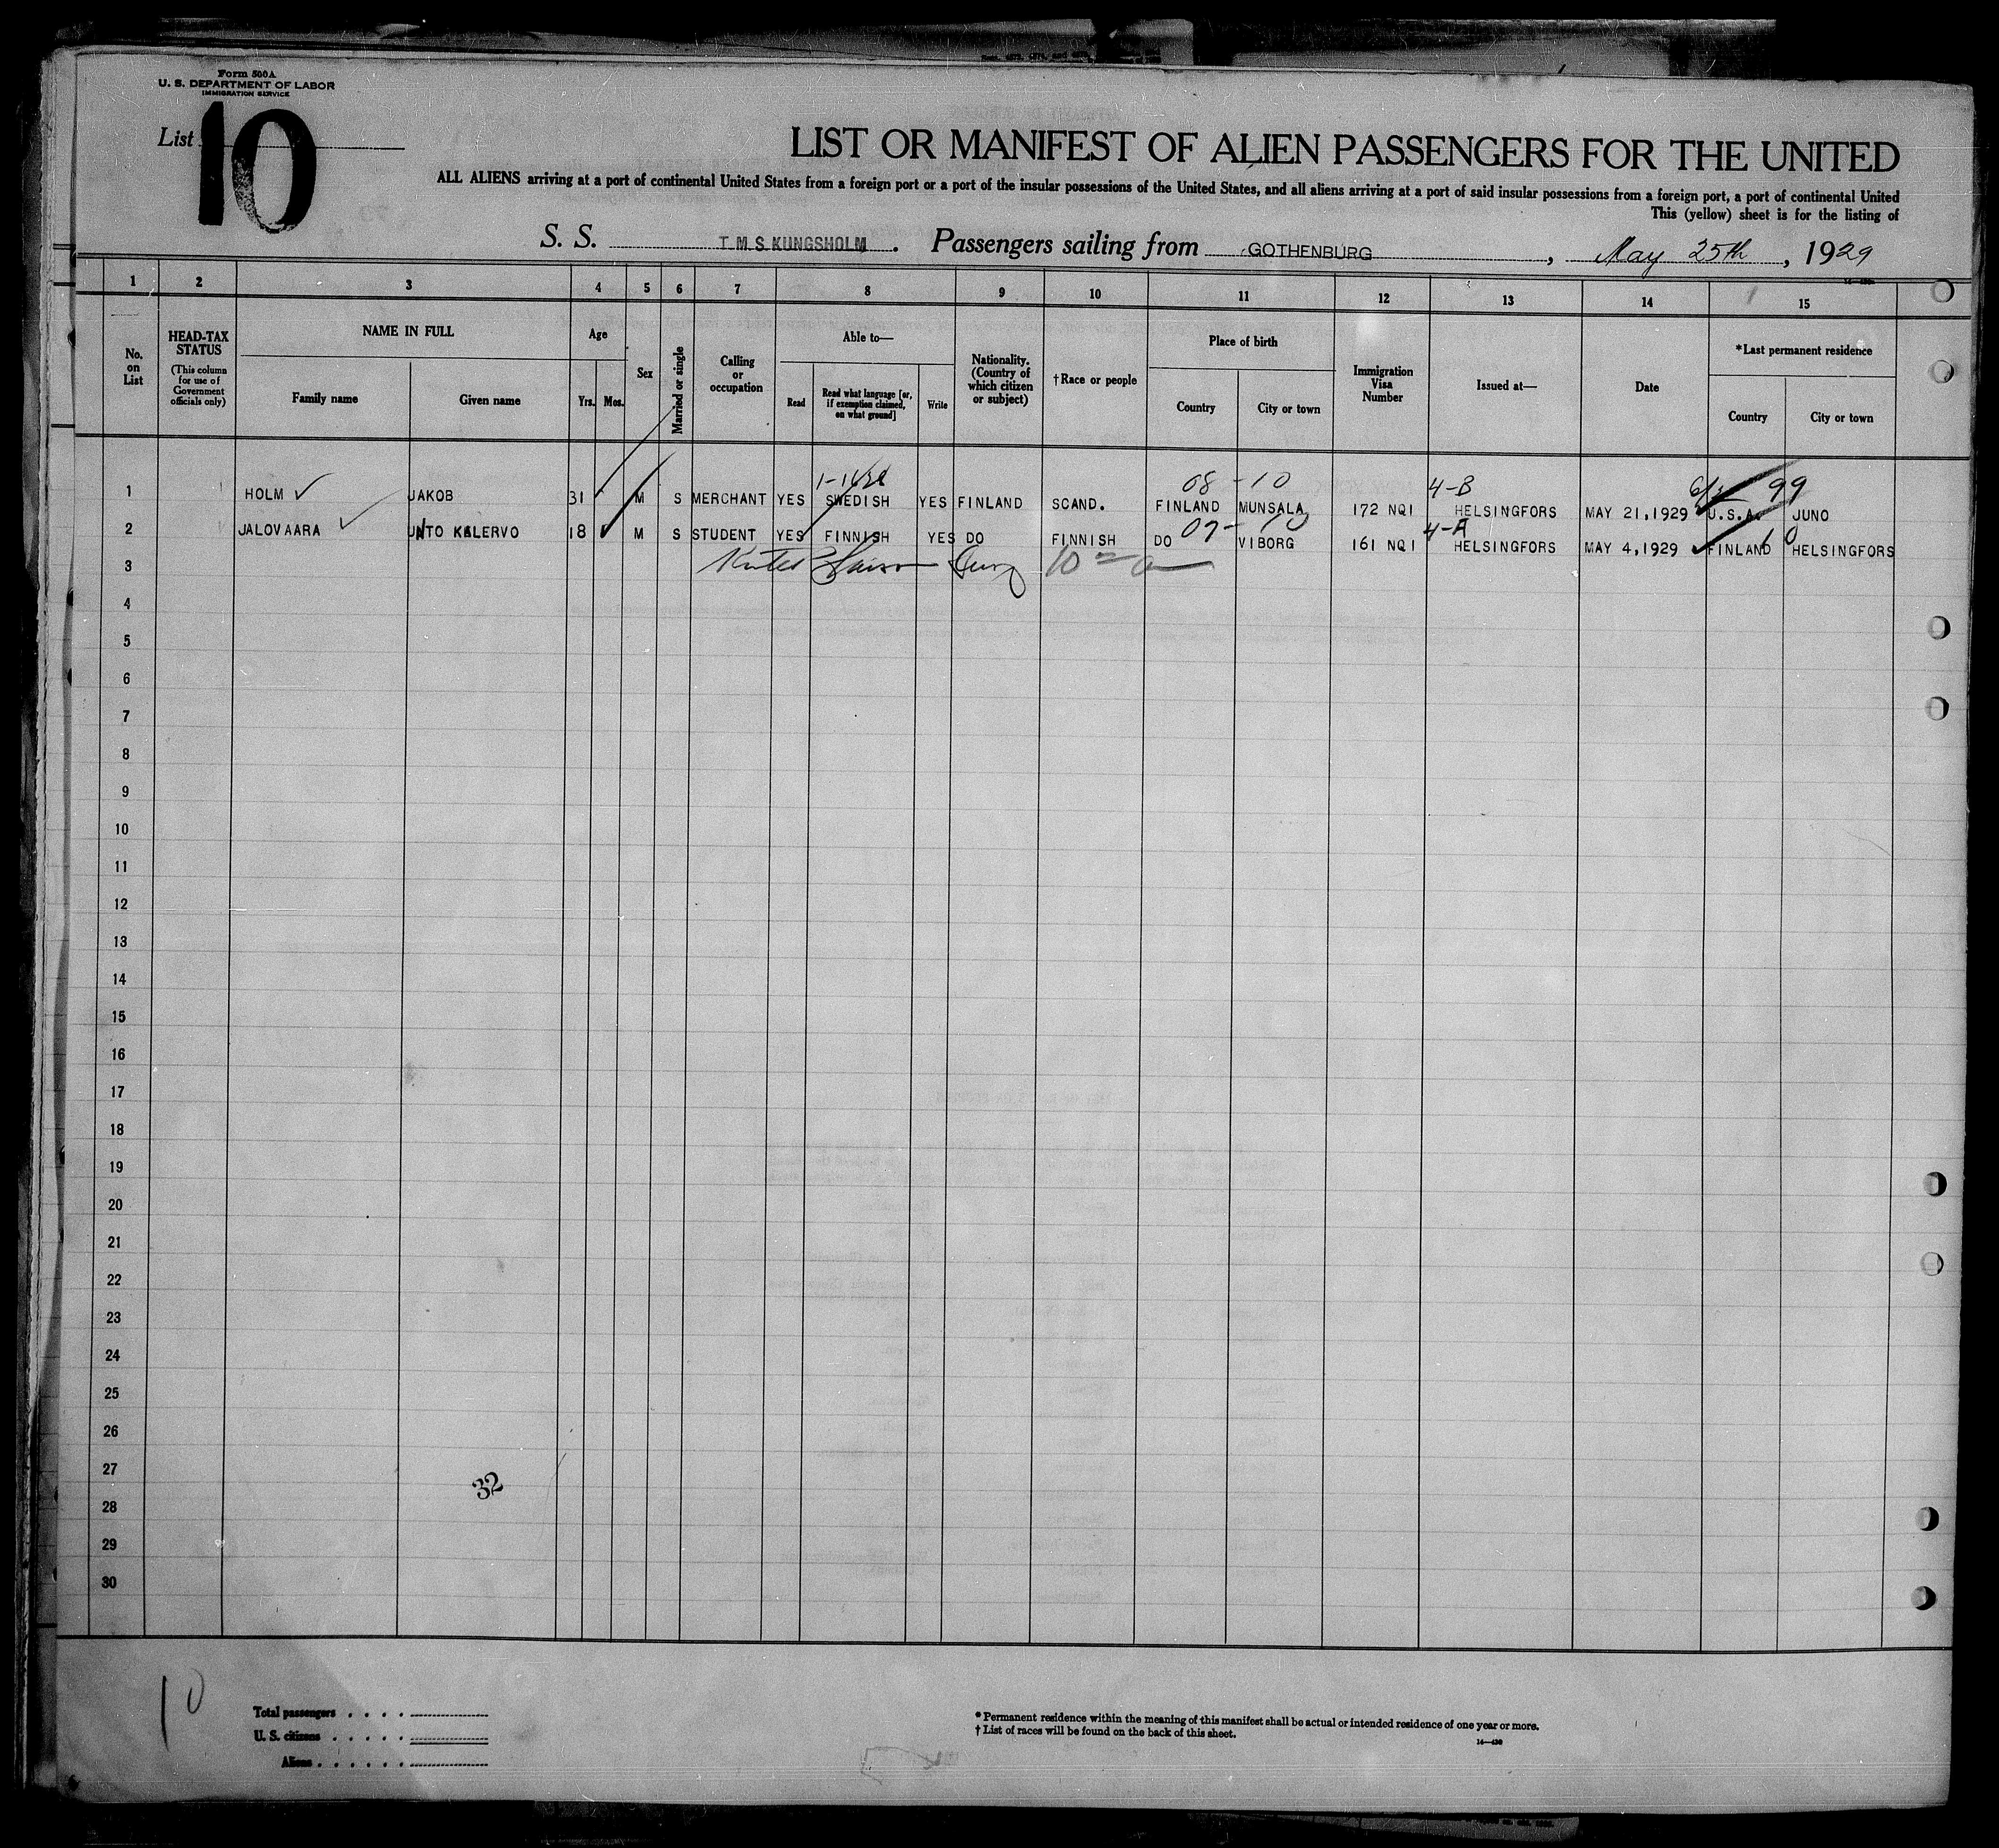 Form 500A
U. S. DEPARTMENT OF LABOR
IMMIGRATION SERVICE
List 10
LIST OR MANIFEST OF ALIEN PASSENGERS FOR THE UNITED
ALL ALIENS arriving at a port of continental United States from a foreign port or a port of the insular possessions of the United States, and all aliens arriving at a port of said insular possessions from a foreign port, a port of continental United
This (yellow) sheet is for the listing of
S. S. T M S KUNGSHOLM. Passengers sailing from GOTHENBURG, May 25th, 1929
1 2 3 4 5 6 7 8 9 10 11 12 13 14 15
No. on List
HEAD-TAX STATUS
(This column for use of Government officials only)
NAME IN FULL
Family name Given name
Age
Yrs. Mos.
Sex
Married or single
Calling or occupation
Able to—
Read
Read what language [or, if exemption claimed, on what ground]
Write
Nationality. (Country of which citizen or subject)
†Race or people
Place of birth
Country City or town
Immigration Visa Number
Issued at—
Date
*Last permanent residence
Country City or town
08 - 10 4-B 99
1 HOLM JAKOB 31 M S MERCHANT YES SWEDISH YES FINLAND SCAND. FINLAND MUNSALA 172 NQI HELSINGFORS MAY 21,1929 U.S.A. JUNO
07- 10 4-A
2 JALOVAARA UNTO KALERVO 18 M S STUDENT YES FINNISH YES DO FINNISH DO VIBORG 161 NQI HELSINGFORS MAY 4,1929 FINLAND HELSINGFORS
3
4
5
6
7
8
9
10
11
12
13
14
15
16
17
18
19
20
21
22
23
24
25
26
27
32
28
29
30
10
Total passengers . . . .
U. S. citizens . . . . .
Aliens . . . . . .
* Permanent residence within the meaning of this manifest shall be actual or intended residence of one year or more.
† List of races will be found on the back of this sheet.
14—430